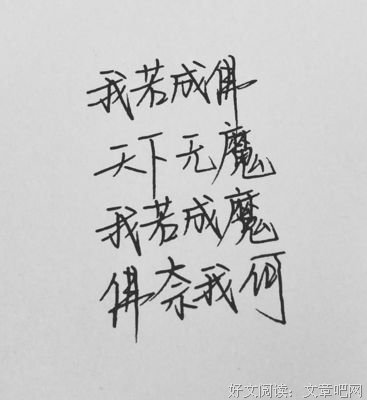 我若成佛
天下无魔
我若成魔
佛奈我何
好文阅读：文章吧网